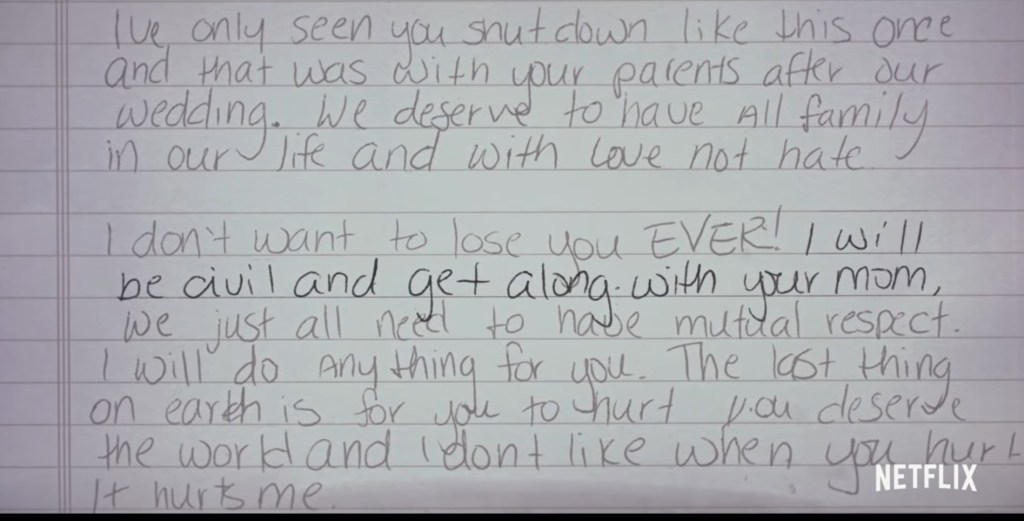 I've only seen you shut down like this once
and that was with your parents after our
wedding. We deserve to have All family
in our life and with love not hate
I don't want to lose you EVER! I will
be civil and get along with your mom,
we just all need to have mutual respect.
I will do Anything for you. The last thing
on earth is for you to hurt you deserve
the world and I dont like when you hurt
It hurts me
NETFLIX